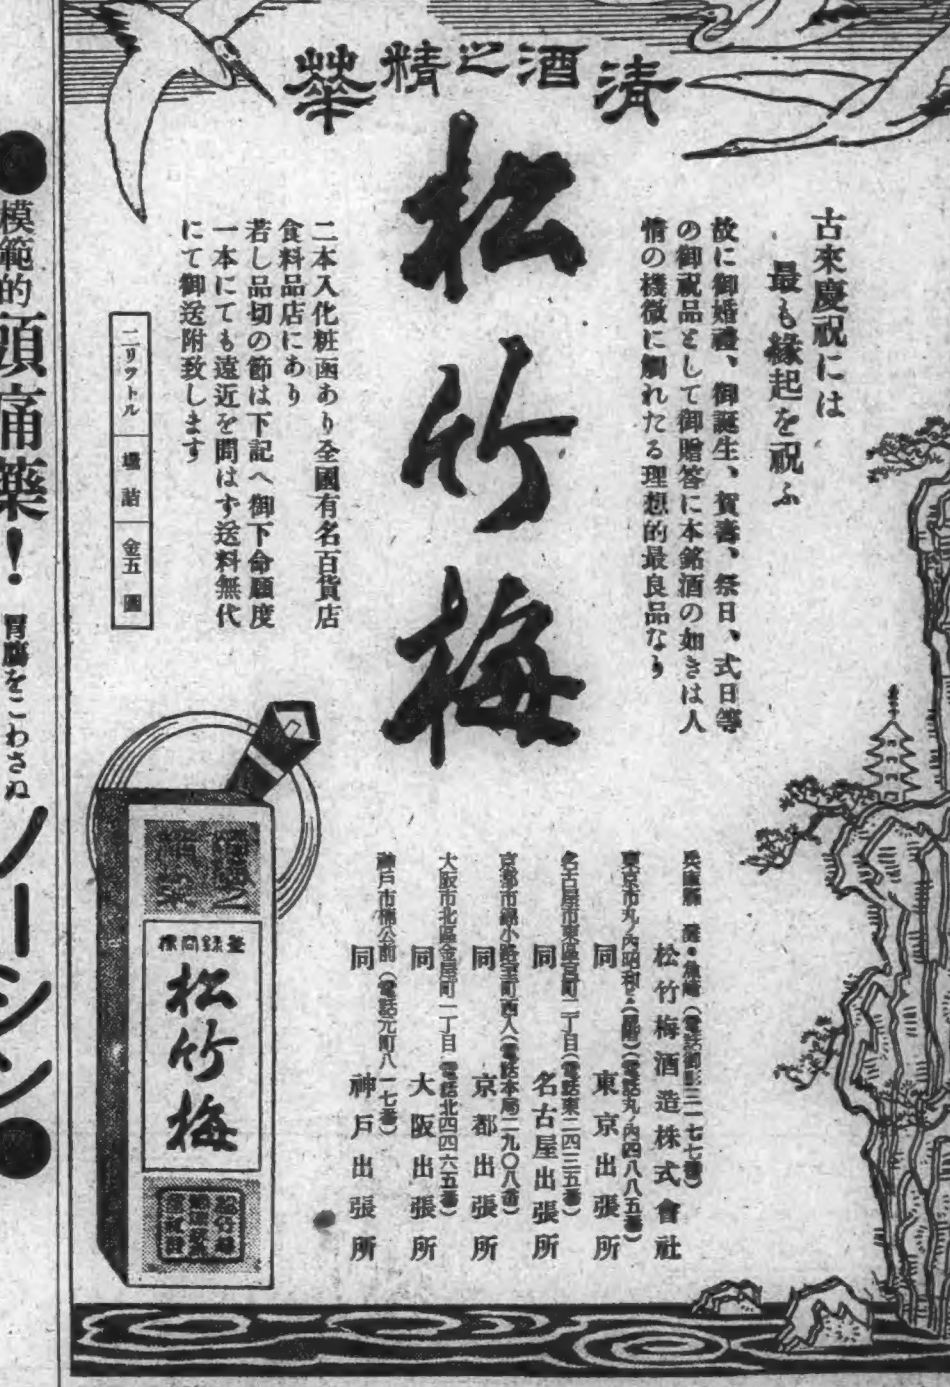 清酒之精華
松竹梅
古來慶祝には
最も緣起を祝ふ
故に御婚禮、御誕生、賀壽、祭日、式日等
の御祝品として御贈答に本銘酒の如きは人
情の機微に觸れたる理想的最良品なり
二本入化粧函あり全國有名百貨店
食料品店にあり
若し品切の節は下記へ御下命願度
一本にても遠近を問はす送料無代
にて御送附致します
二リツトル 壜詰 金五圓
兵庫縣 灘・魚崎(電話御影三一七七番)
松竹梅酒造株式會社
東京市丸ノ內昭和ビル(電話丸ノ內四八八五番)
同 東京出張所
名古屋市東區宮町二丁目(電話東二四三五番)
同 名古屋出張所
京都市錦小路室町西入(電話本局二九〇八番)
同 京都出張所
大阪市北區金屋町一丁目(電話北四四六五番)
同 大阪出張所
神戶市楠公前(電話元町八一七番)
同 神戶出張所
登錄商標
松竹梅
模範的頭痛藥!
胃腸をこわさぬ
ノーシン